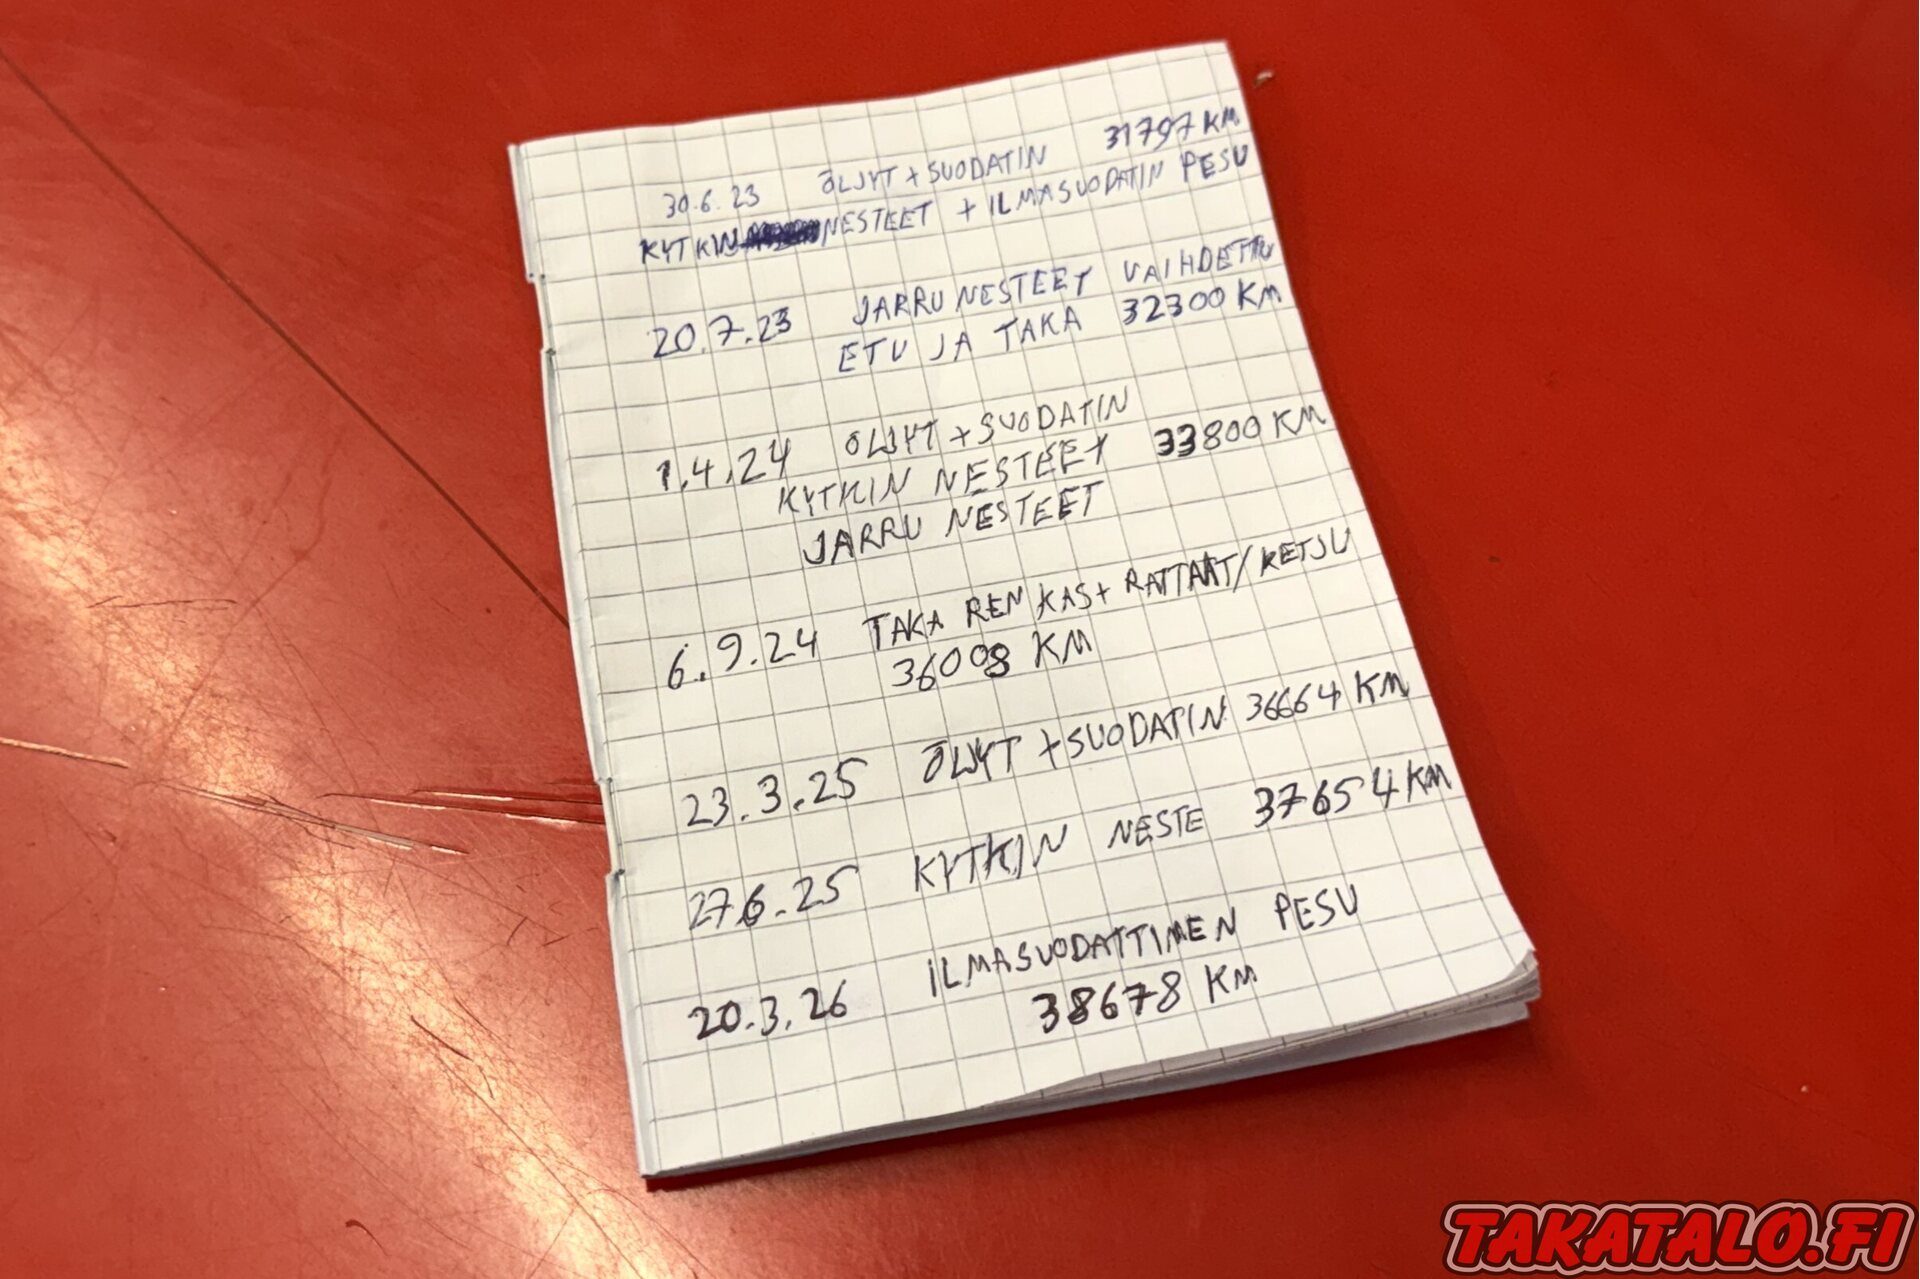 30.6.23 ÖLJYT + SUODATIN 31797 KM
KYTKIN NESTEET + ILMASUODATIN PESU
20.7.23 JARRU NESTEET VAIHDETTU
ETU JA TAKA 32300 KM
1.4.24 ÖLJYT + SUODATIN
KYTKIN NESTEET 33800 KM
JARRU NESTEET
6.9.24 TAKA RENKAS + RATTAAT/KETJU
36008 KM
23.3.25 ÖLJYT + SUODATIN 36664 KM
27.6.25 KYTKIN NESTE 37654 KM
20.3.26 ILMASUODATTIMEN PESU
38678 KM
TAKATALO.FI